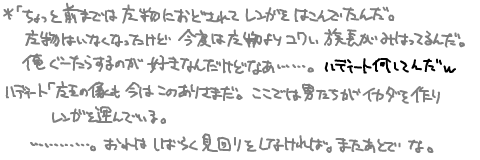 *「ちょっと前までは 左物におどされて レンガをはこんでたんだ。
左物はいなくなったけど 今度は左物よりコワい 族長がみはってるんだ。
俺ぐーたらするのが 好きなんだけどなあ……。 ハディート何してんだw
ハディート「左王の像も 今はこのありさまだ。ここでは男たちがイカダを作り
レンガを運んでいる。
…………。おれは しばらく見回りをしなければ。またあとで な。